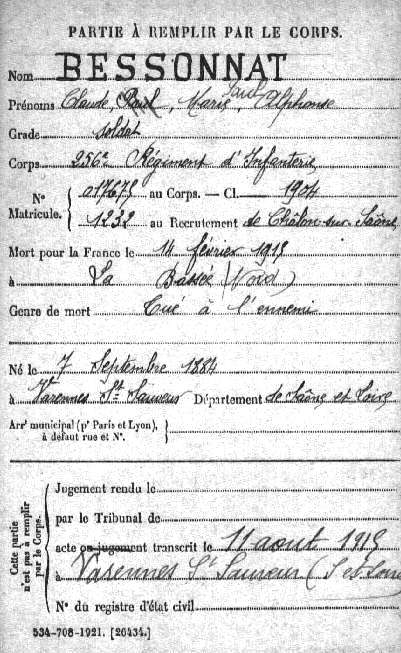 PARTIE À REMPLIR PAR LE CORPS.
Nom BESSONNAT
Prénoms Claude, Paul, Marie Paul Alphonse
Grade soldat
Corps 256e Régiment d'Infanterie
N° Matricule. 017675 au Corps. — Cl. 1904
1232 au Recrutement de Châlon sur Saône
Mort pour la France le 14 février 1915
à La Bassée (Nord)
Genre de mort Tué à l'ennemi
Né le 7 Septembre 1884
à Varennes St Sauveur Département de Saône et Loire
Arrt municipal (pr Paris et Lyon), à défaut rue et N°.
Cette partie n'est pas à remplir par le Corps.
Jugement rendu le
par le Tribunal de
acte ou jugement transcrit le 11 aout 1915
à Varennes St Sauveur (S et Loire)
N° du registre d'état civil
534-708-1921. [26434.]